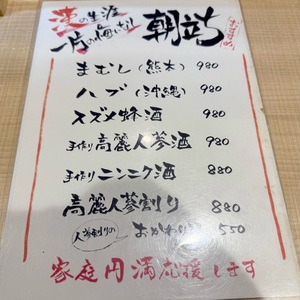 漢の生涯
一片の悔いなし
朝立ち
おすすめ。
まむし(熊本) 980
ハブ(沖縄) 980
スズメ蜂酒 980
手作り高麗人参酒 980
手作りニンニク酒 880
高麗人参割り 880
人参割りの おかわり 550
家庭円満応援します